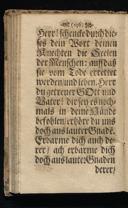 (196)
Herr! schencke durch die-
ses dein Wort deinen
Knechten die Seelen
der Menschen: auff daß
sie vom Tode errettet
werden und leben. Herr
du getreuer Gott und
Vater! dir sey es noch-
mals in deine Hände
befohlen/ erhöre du uns
doch aus lauter Gnade.
Erbarme dich auch de-
rer/ ach erbarme dich
doch aus lauter Gnaden
derer/